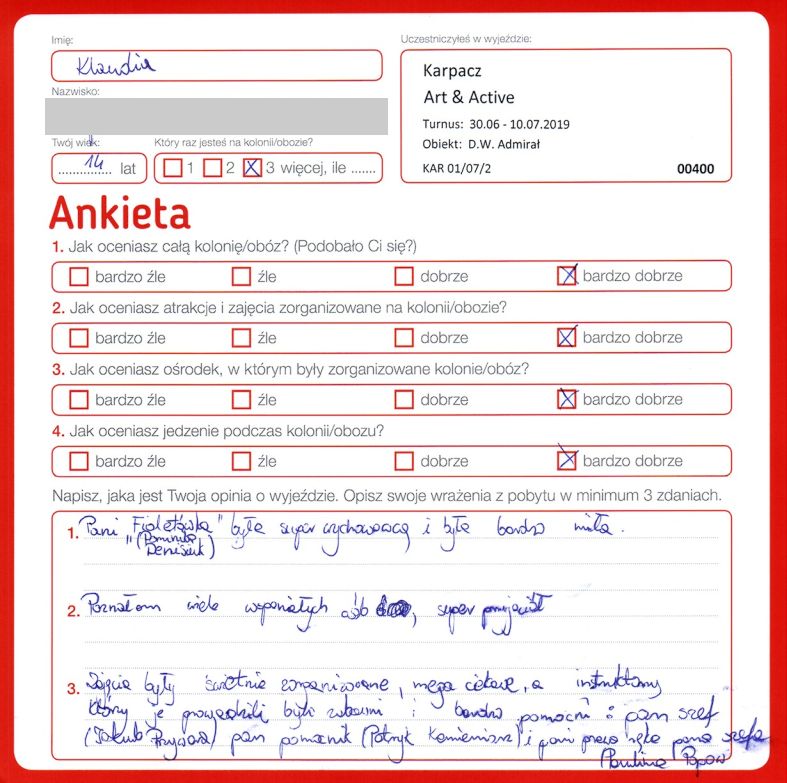 Imię:
Klaudia
Nazwisko:
Twój wiek:
14 lat
Który raz jesteś na kolonii/obozie?
1 2 3 więcej, ile .......
Uczestniczyłeś w wyjeździe:
Karpacz
Art & Active
Turnus: 30.06 - 10.07.2019
Obiekt: D.W. Admirał
KAR 01/07/2 00400
Ankieta
1. Jak oceniasz całą kolonię/obóz? (Podobało Ci się?)
bardzo źle źle dobrze bardzo dobrze
2. Jak oceniasz atrakcje i zajęcia zorganizowane na kolonii/obozie?
bardzo źle źle dobrze bardzo dobrze
3. Jak oceniasz ośrodek, w którym były zorganizowane kolonie/obóz?
bardzo źle źle dobrze bardzo dobrze
4. Jak oceniasz jedzenie podczas kolonii/obozu?
bardzo źle źle dobrze bardzo dobrze
Napisz, jaka jest Twoja opinia o wyjeździe. Opisz swoje wrażenia z pobytu w minimum 3 zdaniach.
1. Pani „Fioletówka" była super wychowawcą i była bardzo miła.
(Dominika
Denisiuk)
2. Poznałam wiele wspaniałych osób, super przyjaciół
3. Zajęcia były świetnie zorganizowane, mega ciekawe, a instruktorzy
którzy je prowadzili byli zabawni i bardzo pomocni: pan szef
(Jakub Przywara) pan pomocnik (Patryk Kamieniarz) i pani prawa ręka pana szefa
Paulina